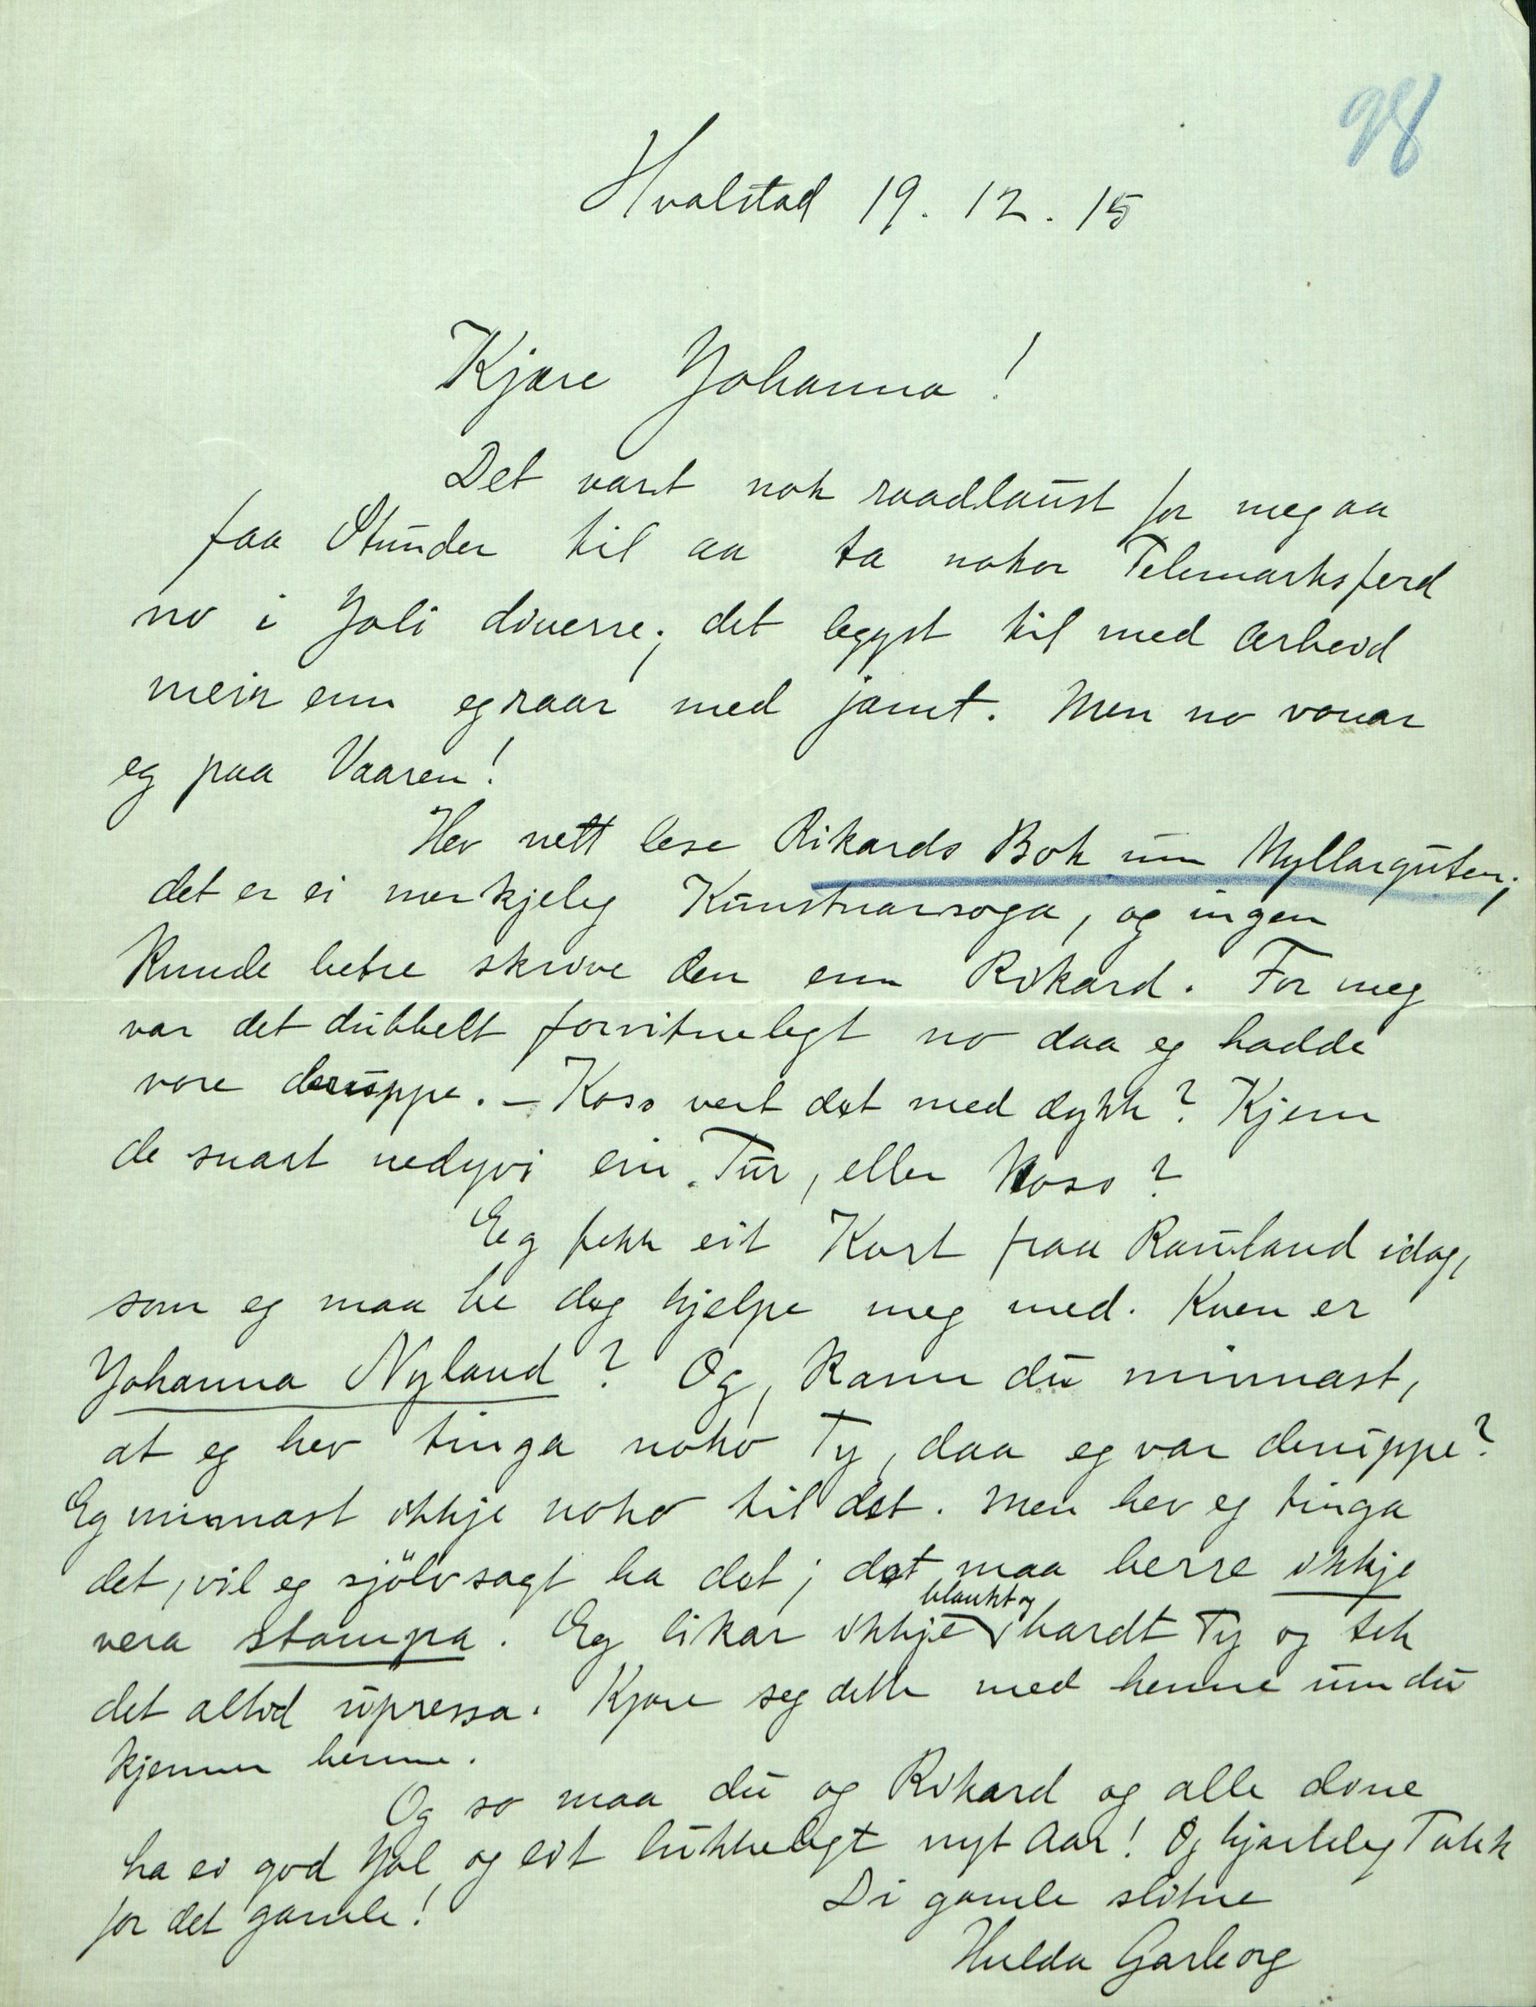 98
Hvalstad 19.12.15
Kjære Johanna!
Det vart nok raadlaust for meg aa
faa Stunder til aa ta nokor Telemarksferd
no i Joli diverre; det legg st til med Arbeid
meir enn eg raar med jamt. Men no vonar
eg paa Vaaren!
Hev nett lese Rikards Bok um Myllarguten;
det er ei merkjeleg Kunstnarsoga, og ingen
kunde betre skrive den enn Rikard. For meg
var det dubbelt forvitnelegt no daa eg hadde
vore deruppe. – Koss vert det med dykk? Kjem
de snart nedyvi ein Tur, eller Koss?
Eg fekk eit Kort fraa Rauland idag,
som eg maa be deg hjelpe meg med. Kven er
Johanna Nyland? Og, kann du minnast,
at eg hev tinga noko Ty, daa eg var deruppe?
Eg minnast ikkje noko til det. Men hev eg tinga
det, vil eg sjölvsagt ha det; det maa berre ikkje
vera stampa. Eg likar ikkje blankt og hardt Ty og tek
det altid upressa. Kjære seg dette med henne um du
kjenner henne.
Og so maa du og Rikard og alle dine
ha ei god Jol og eit lukkelegt nytt Aar! Og hjarteleg Takk
for det gamle!
Di gamle slitne
Hulda Garborg